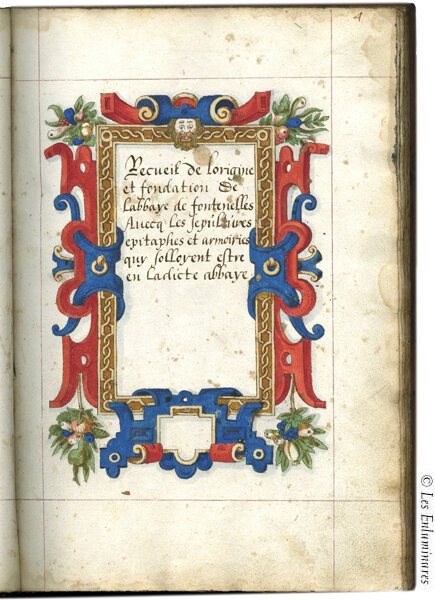 1
Recueil de lorigine
et fondation de
Labbaye de fontenelles
Auecq Les sepultures
epitaphes et armoiries
quy solloyent estre
en Ladicte abbaye
© Les Enluminures